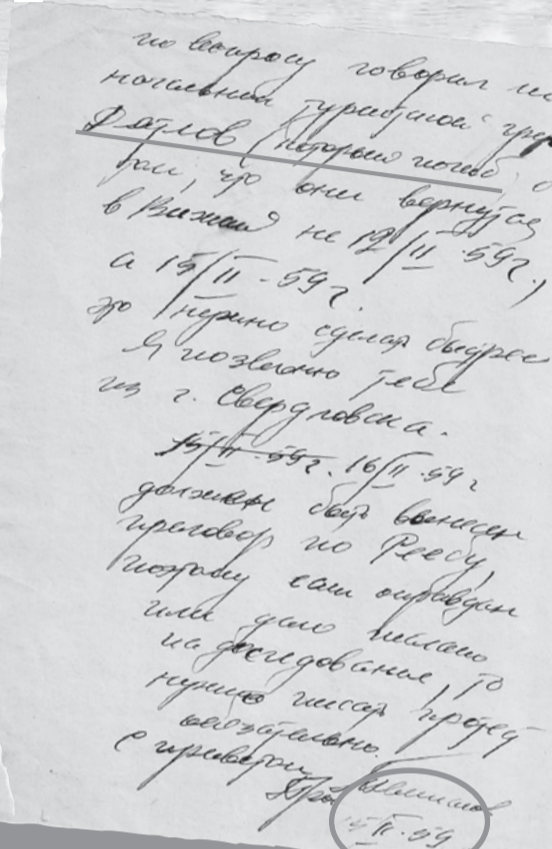 по вопросу говорил
начальник туристской
Дятлов (который погиб) о
том, что они вернутся
в Вижай не 12/II.59г.,
а 15/II-59г.
это нужно сделать быстрее
Я позвоню тебе
из г. Свердловска.
15/II-59г. 16/II.59г
должен быть вынесен
приговор по Реебу,
поэтому если оправдан
или дело
на доследование, то
нужно писать протест
обязательно.
С приветом
II.59